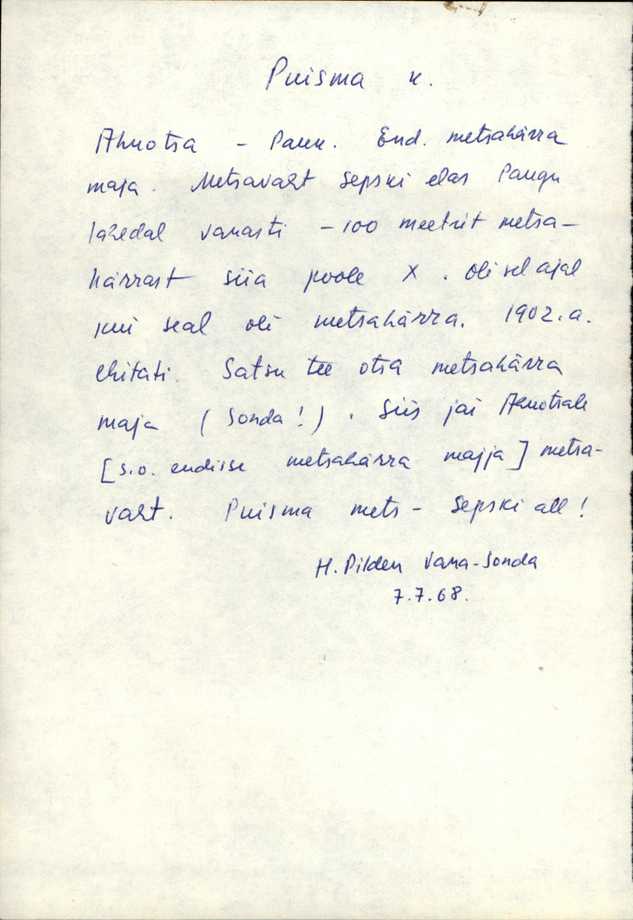 Puisma k.
Ahuotsa - Pauk. End. metsahärra
maja. Metsavaht Sepski elas Paugu
lähedal vanasti - 100 meetrit metsa-
härrast siia poole X. Oli sel ajal
kui seal oli metsahärra. 1902.a.
ehitati. Satsu tee otsa metsahärra
maja (Sonda!). Siis jäi Ahuotsale
[s.o. endisse metsahärra majja] metsa-
vaht. Puisma mets - Sepski all!
H. Pilden Vana-Sonda
7.7.68.